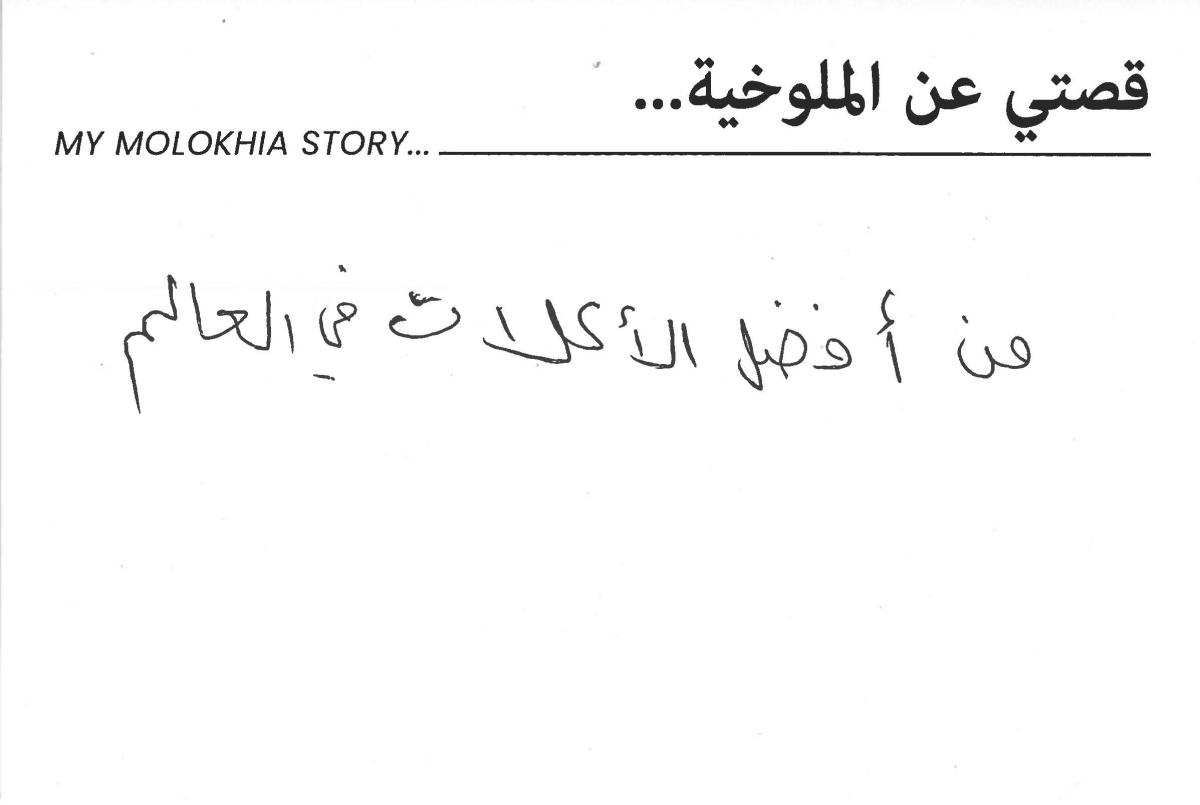 قصتي عن الملوخية...
MY MOLOKHIA STORY...
من أفضل الأكلات في العالم